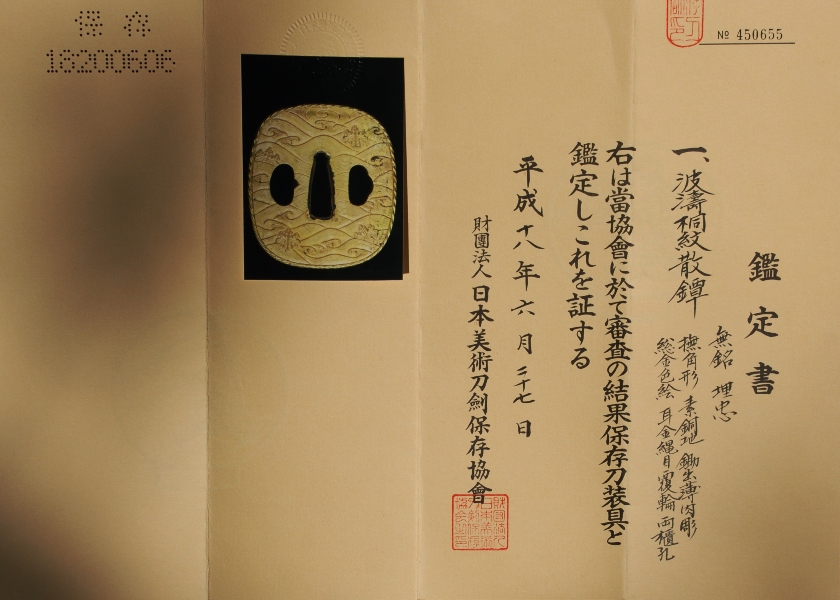 № 450655
鑑定書
一、波濤桐紋散鐔
無銘 埋忠
撫角形 素銅地 鋤出薄肉彫
総金色絵 耳金縄目覆輪 両櫃孔
右は當協會に於て審査の結果保存刀装具と
鑑定しこれを証する
平成十八年六月二十七日
財團法人日本美術刀劍保存協會
保存
18200606